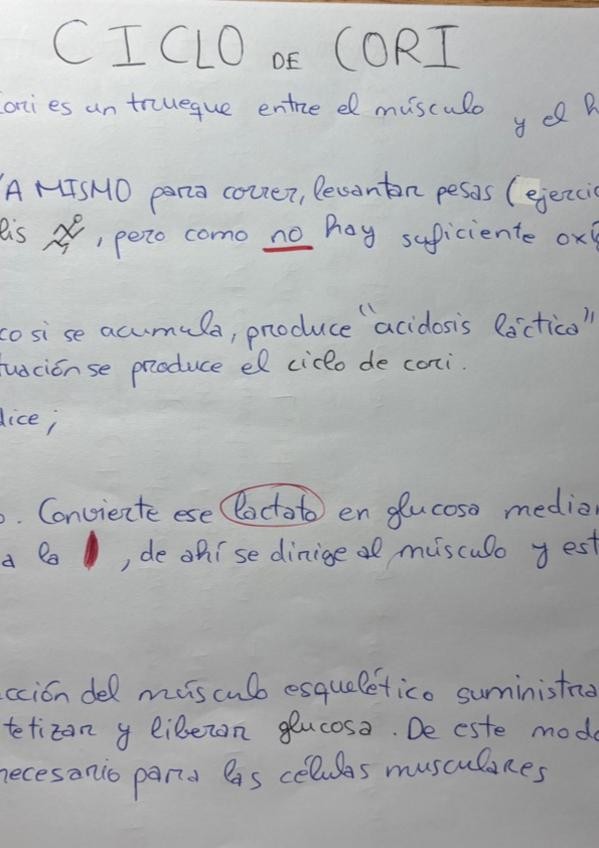 CICLO DE CORI
Cori es un trueque entre el músculo y el h
YA MISMO para correr, levantar pesas (ejercic
lis, pero como no hay suficiente oxí
co si se acumula, produce "acidosis láctica"
tuación se produce el ciclo de cori.
dice;
o. Convierte ese lactato en glucosa median
a la , de ahí se dirige al músculo y est
cción del músculo esquelético suministra
tetizar y liberar glucosa. De este modo
necesario para las células musculares